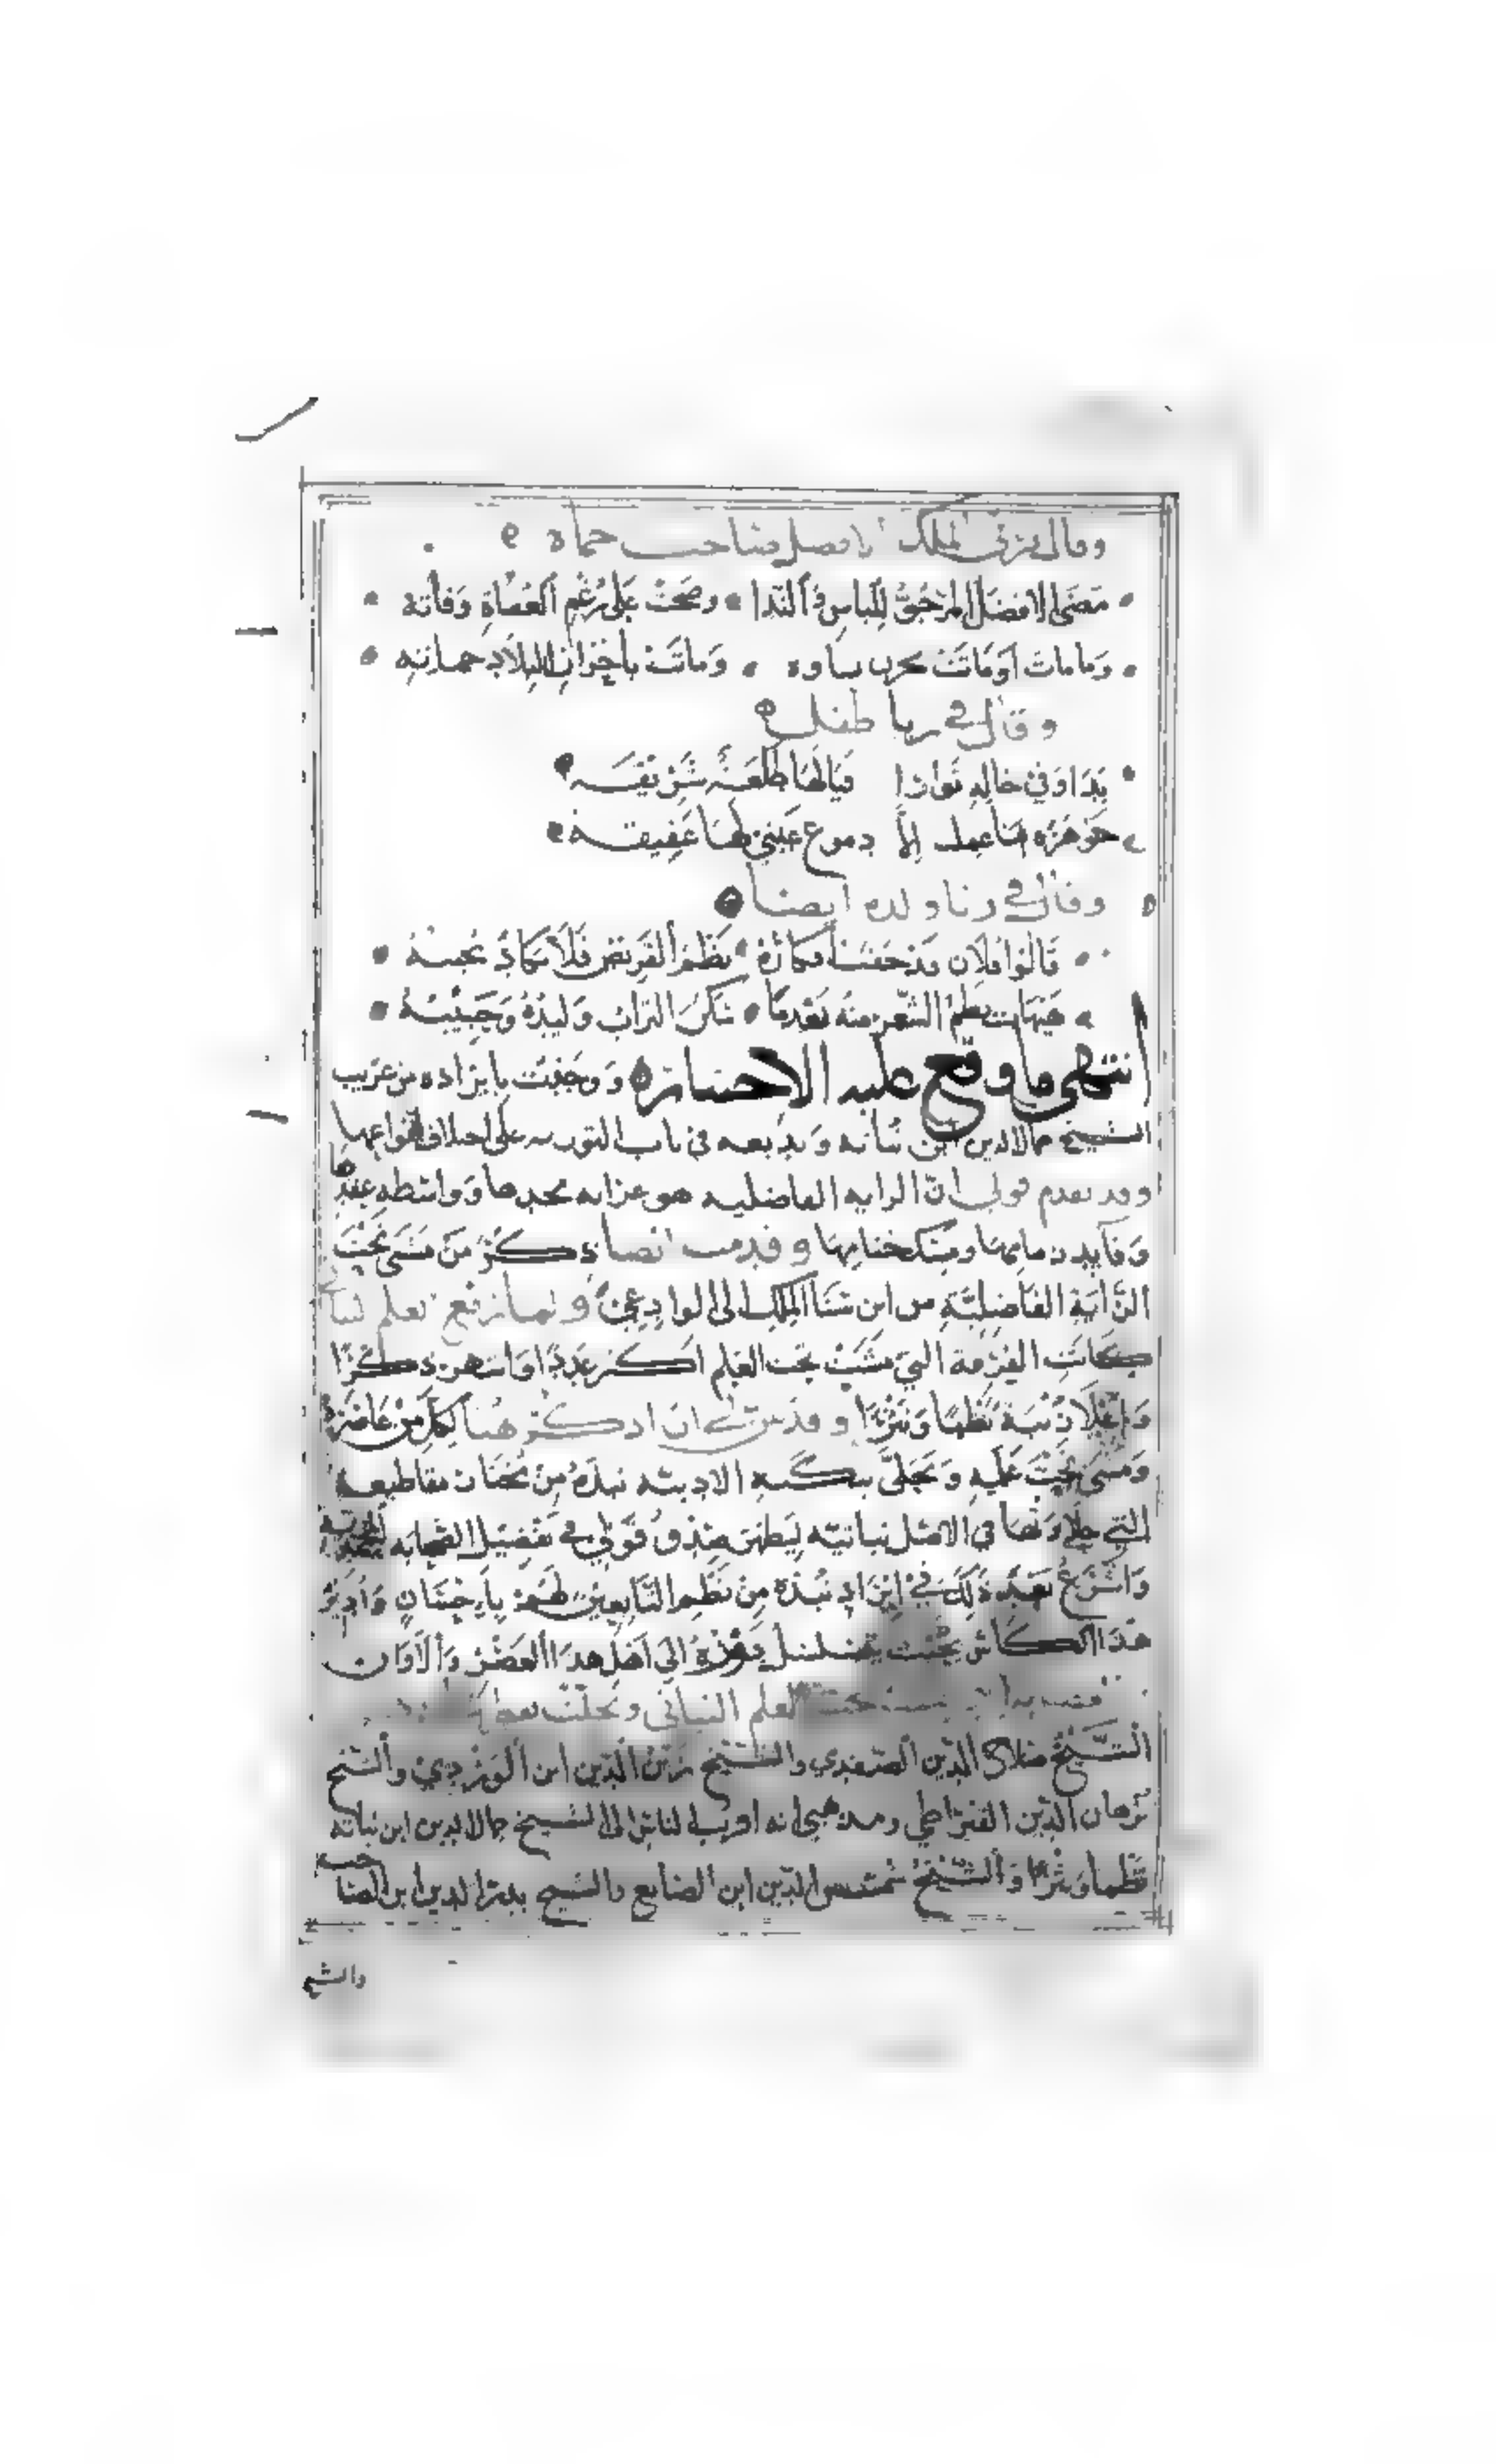 وقال يرثي الملك الافضل صاحب حماة
مضى الافضل المرجو للباس والندا وصحت على رغم العفاة وفاته
وما مات او ماتت بحزن نساوه وماتت باحزان البلاد حماته
وقال في رثا طفل
بدا وفي حاله توارا فيالها طلعة شريقه
جوهرة ما عمل الا دموع عيني لها عقيقه
وقال في رثا ولده ايضا
قالوا فلان قد جفت افكاره نظم القريض فلا يكاد يجيبه
هيهات نظم الشعر منه بعدما سكن التراب وليده وحبيبه
انتهى ما وقع عليه الاختيار ووجبت بايراده من غريب
الشيخ جمال الدين ابن نباته وبديعه في باب التوريه على اختلاف انواعها
وقد تقدم قولي ان الرايه الفاضليه هو عرابه مجدها وواسطه عقدها
وقايد زمامها ومسك ختامها وقدمت ايضا ذكر من مشى تحت
الراية الفاضلية من ابن سنا الملك الى الوادعي ولما رفع العلم النباتي
كانت الفرقة التي مشت تحت العلم اكثر عددا واشهر ذكرا
واعلا رتبة نظما ونثرا وقد عن لي ان اذكر هنا لكل من عاصره
ومشى تحت علمه وتحلى بنكته الادبيه نبذة من مختار مقاطيعه
التي حلاوتها في الاصل نباتيه ليظهر صدق قولي في تفضيل الصحابه المحمديه
واشرع بعد ذلك في ايراد نبذة من نظم التابعين لهم باحسان وادير
هذا الكاس بحيث يتسلسل دوره الى اهل هذا العصر والاوان
تحت العلم النباتي وتحلت
الشيخ صلاح الدين الصفدي والشيخ زين الدين ابن الوردي والشيخ
برهان الدين القيراطي ومذهبي انه اقرب الناس الى الشيخ جمال الدين ابن نباته
نظما ونثرا والشيخ شمس الدين ابن الصايغ والشيخ بدر الدين ابن الصاحب
والشيخ